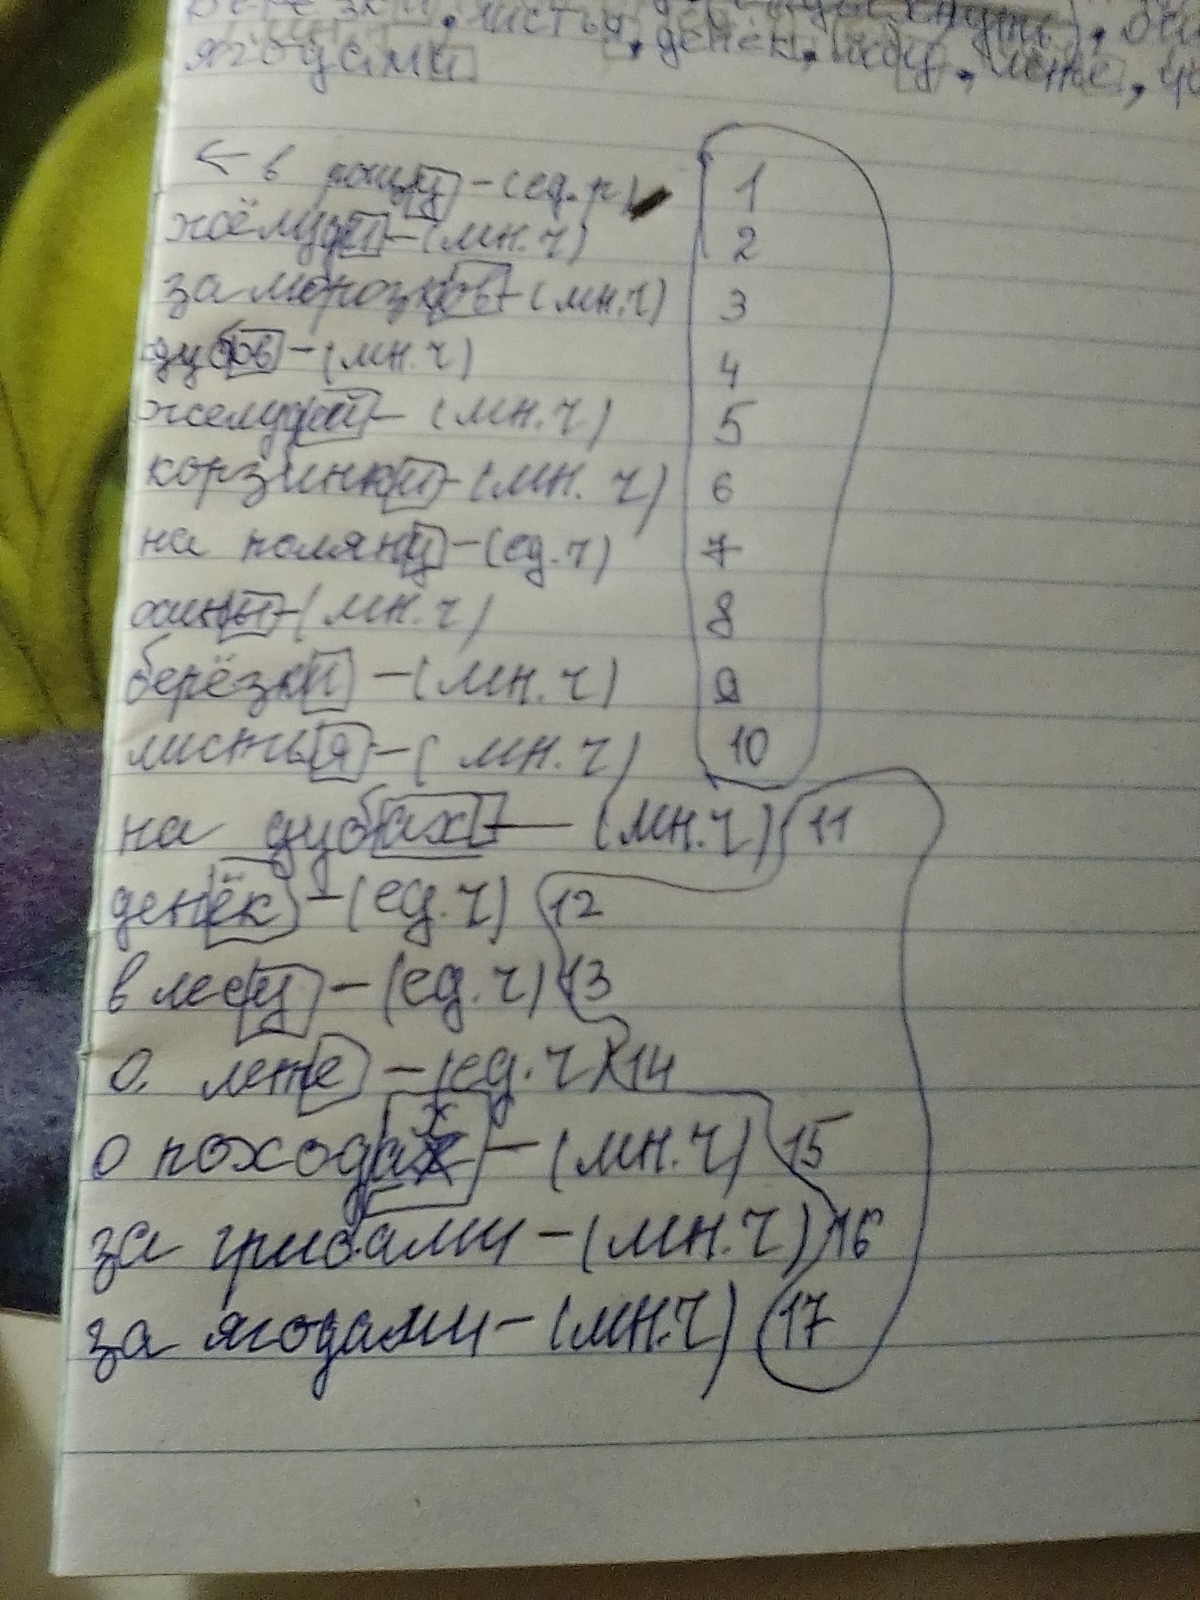 берёзки, листья, денёк, лесу, лете,
ягодами
← в рощу - (ед. ч)
1
жёлуди - (мн. ч)
2
заморозков - (мн. ч)
3
дубов - (мн. ч)
4
желуди - (мн. ч)
5
корзинки - (мн. ч)
6
на поляну - (ед. ч)
7
осины - (мн. ч)
8
берёзки - (мн. ч)
9
листья - (мн. ч)
10
на дубах - (мн. ч) 11
денёк - (ед. ч) 12
в лесу - (ед. ч) 13
о лете - (ед. ч) 14
о походах - (мн. ч) 15
за грибами - (мн. ч) 16
за ягодами - (мн. ч) 17